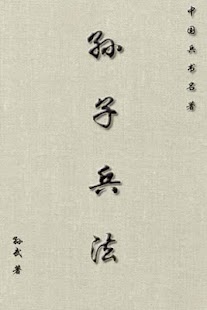 中国兵书名著
孙子兵法
孙武著